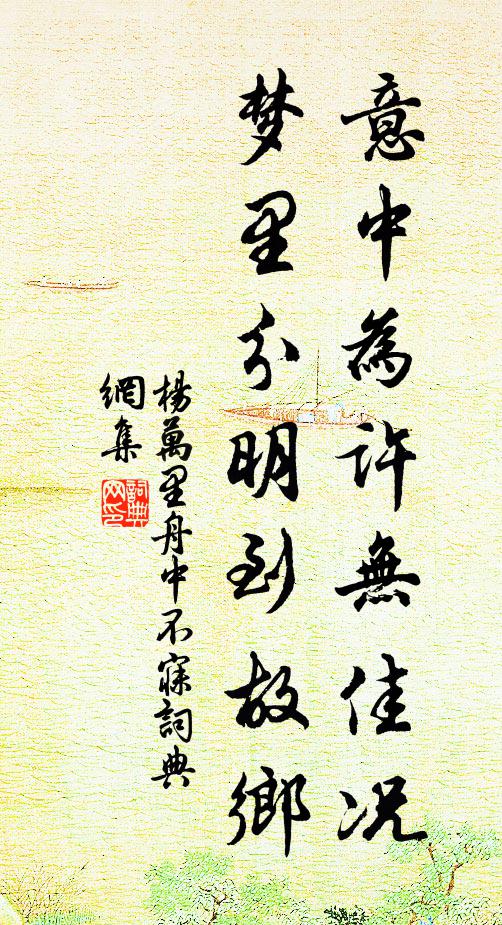 意中為许無佳况
梦里分明到故鄉
楊萬里舟中不寐詞典
網集
詞典
网印